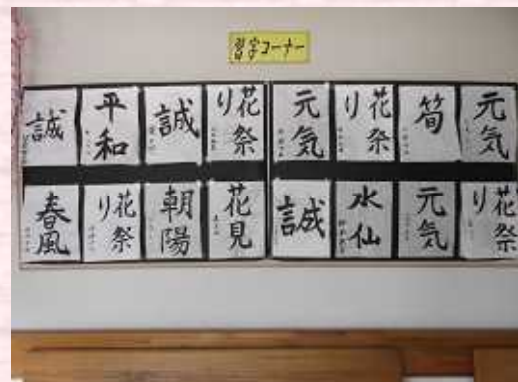 習字コーナー
誠
平和
誠
花祭り
元気
花祭り
筍
元気
春風
花祭り
朝陽
花見
誠
水仙
元気
花祭り